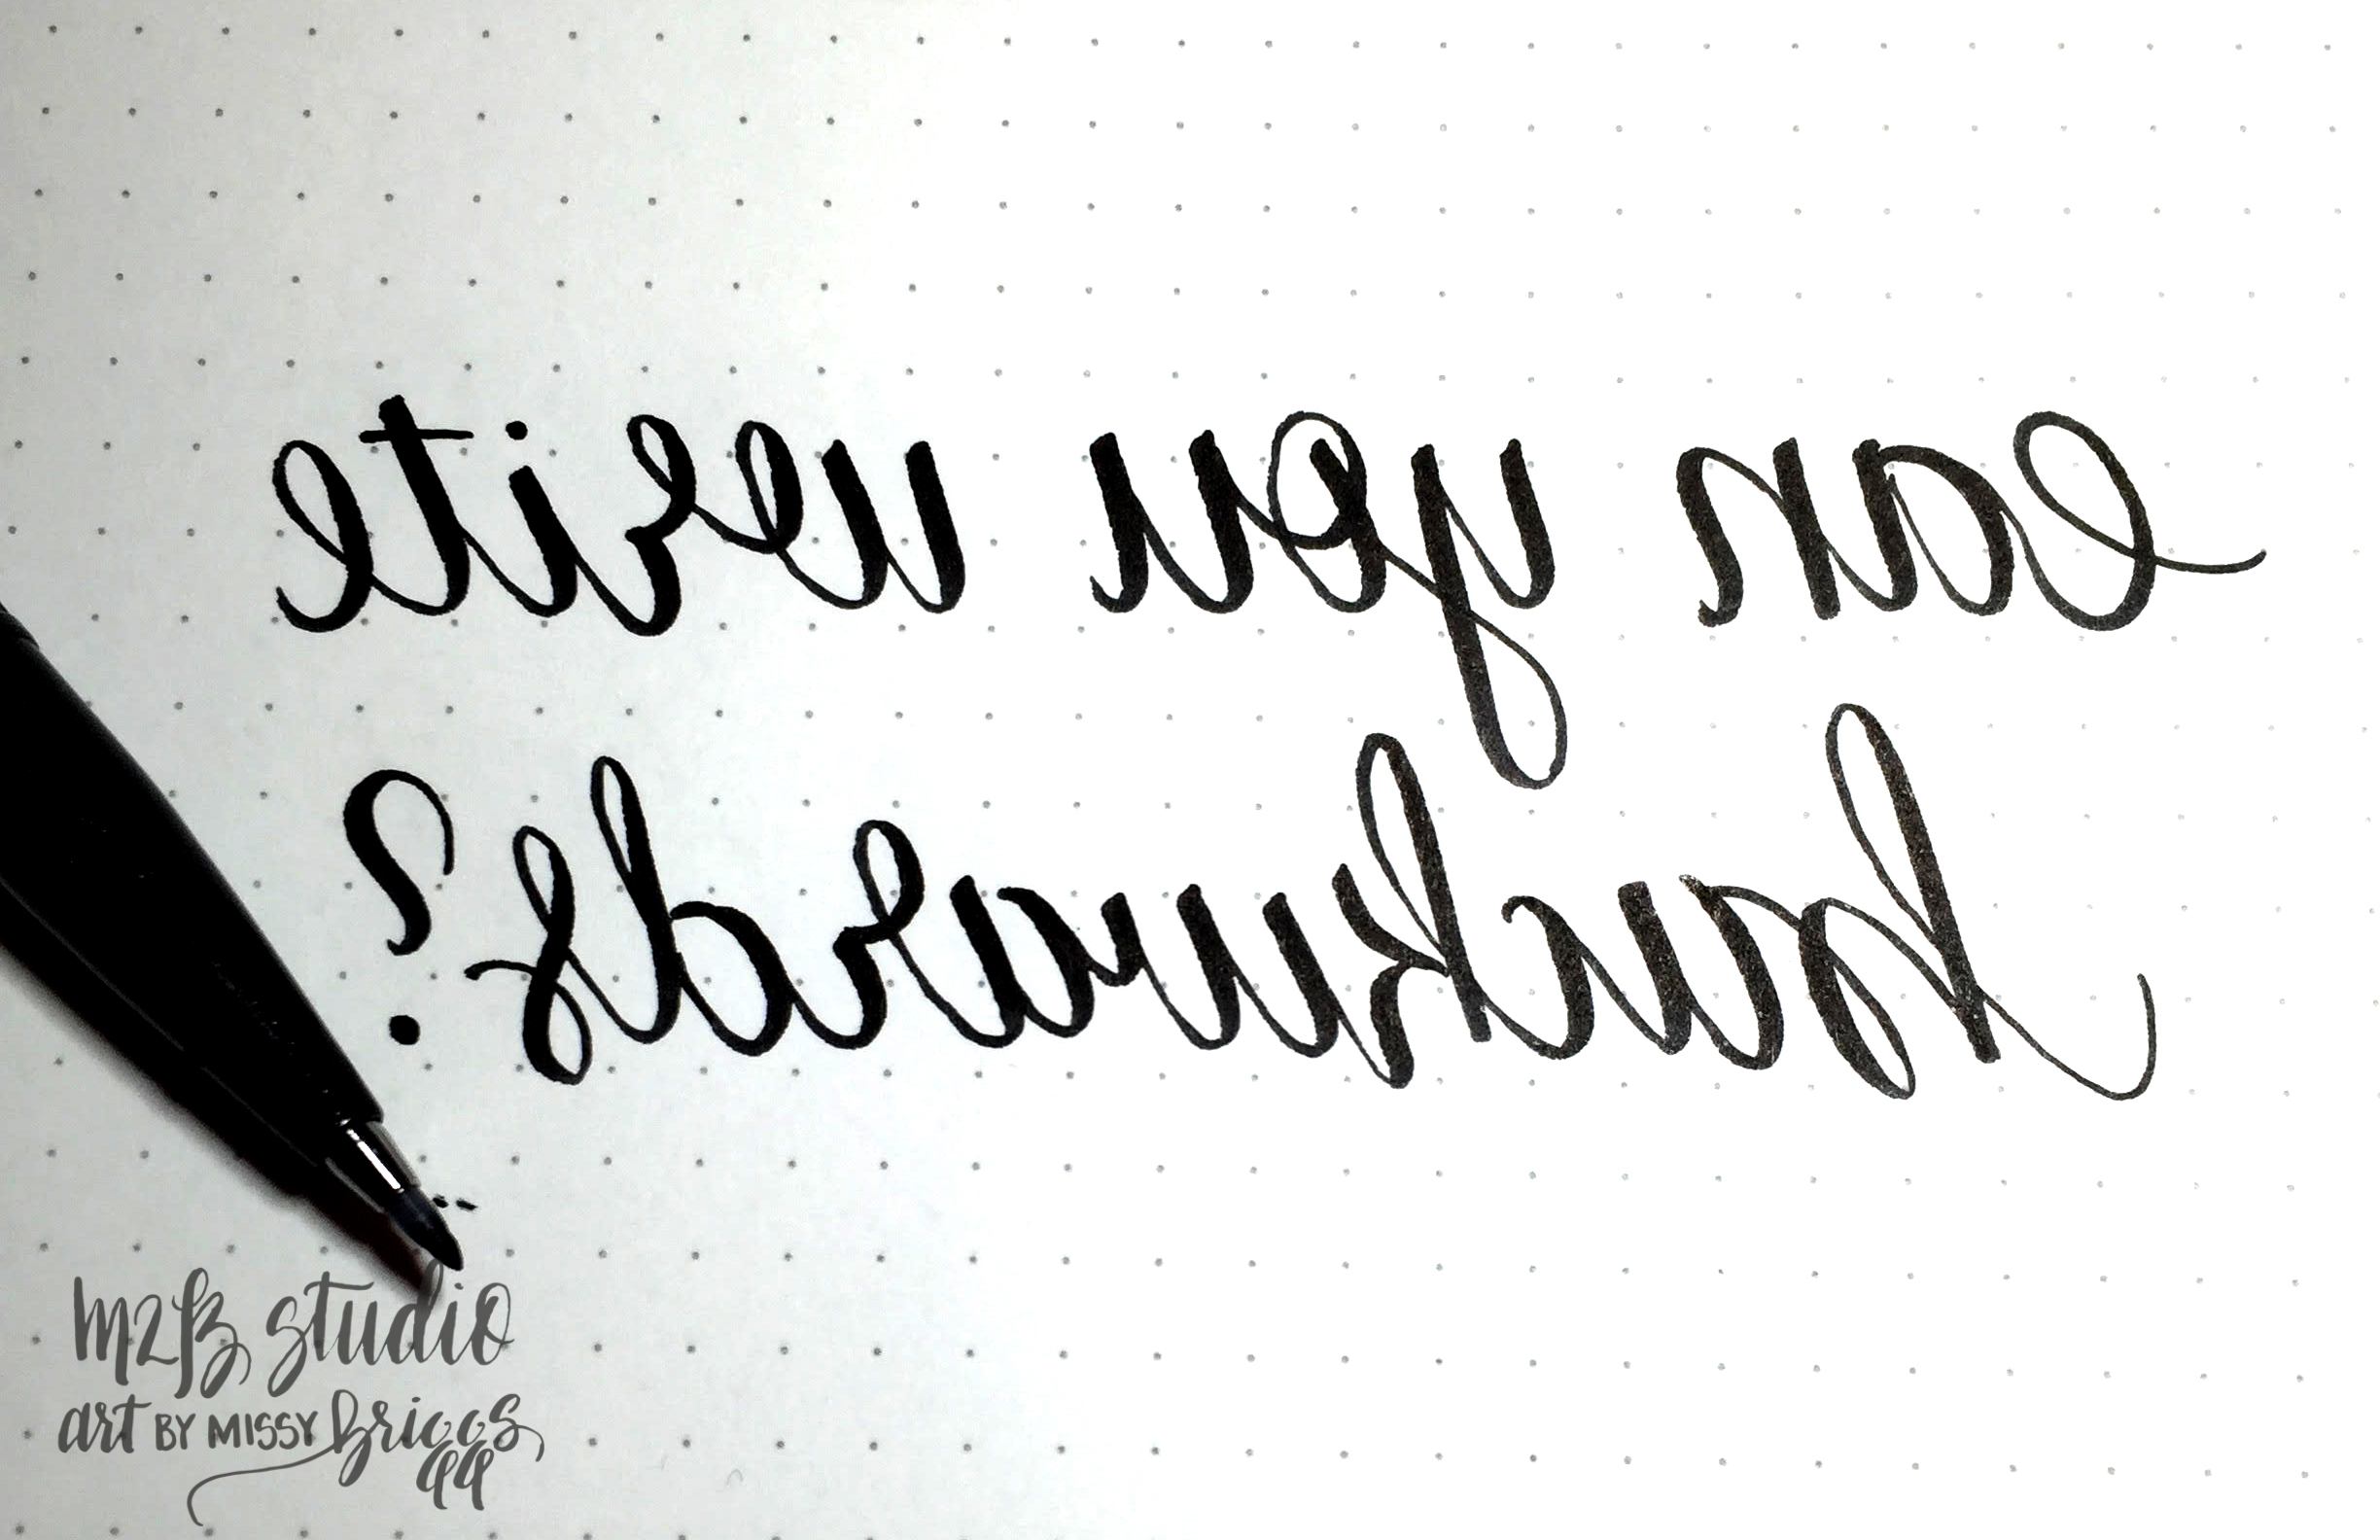 can you write
backwards?
M2B studio
art BY MISSY Briggs